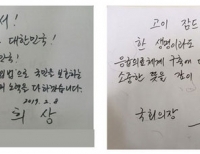 서!
대한민국!
민국!
법으로 국민을 보호하는
노력을 다하겠습니다.
2019. 2. 8
희 상
고이 잠드
한 생명이라도
응급의료체계 구축에
소중한 뜻을 같이
국회의장